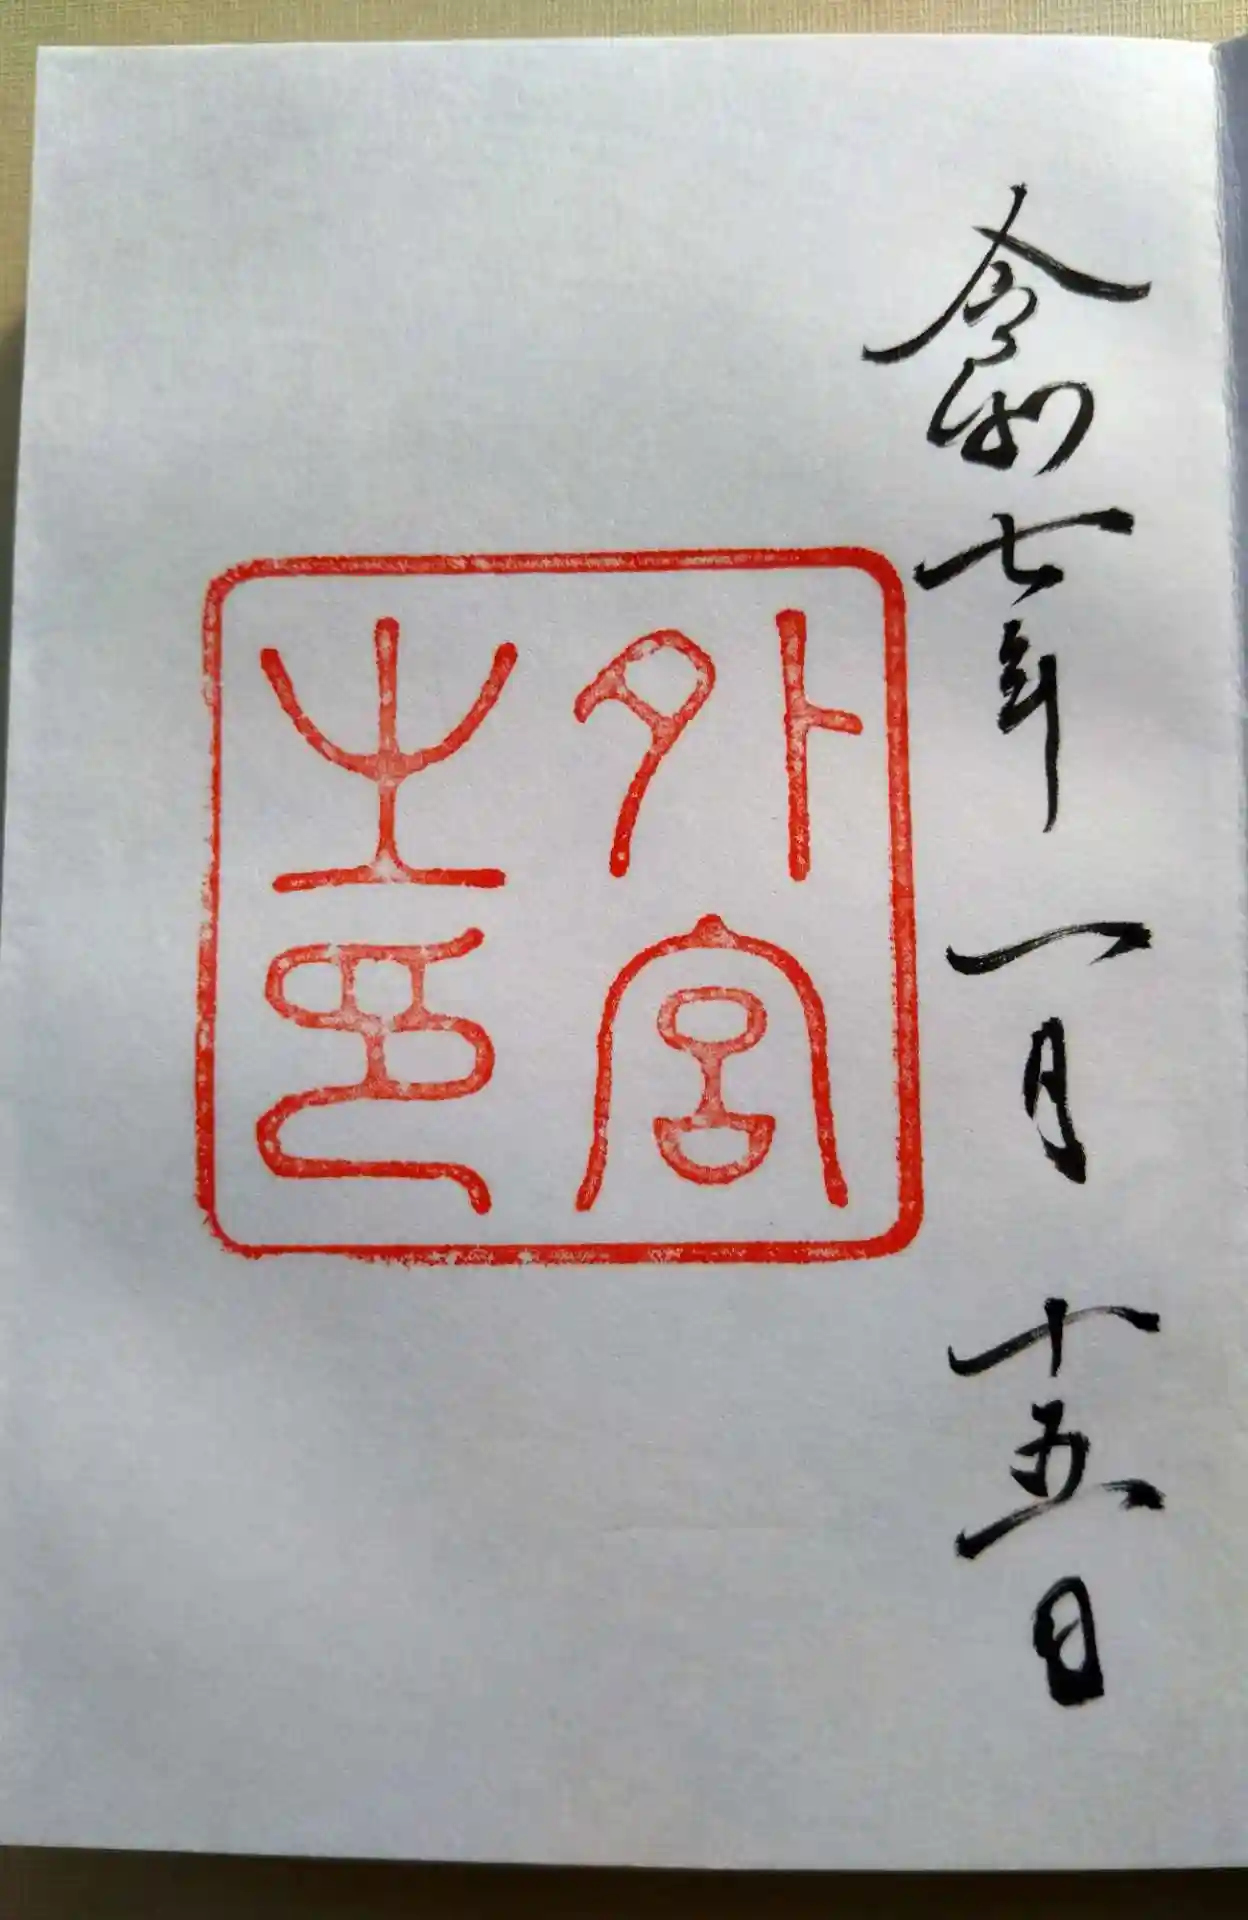 令和七年一月十五日
外宮
之印